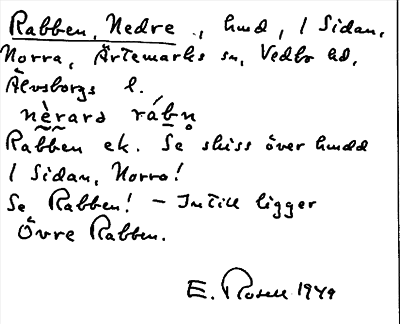 Rabben, Nedre ., hmd, 1 Sidan,
Norra, Ärtemarks sn, Vedbo hd,
Älvsborgs l.
nè̱rarə ráḇn̥
Rabben ek. Se skiss över hmdd
1 Sidan, Norra!
Se Rabben! - Intill ligger
Övre Rabben.
E. Rosell 1949